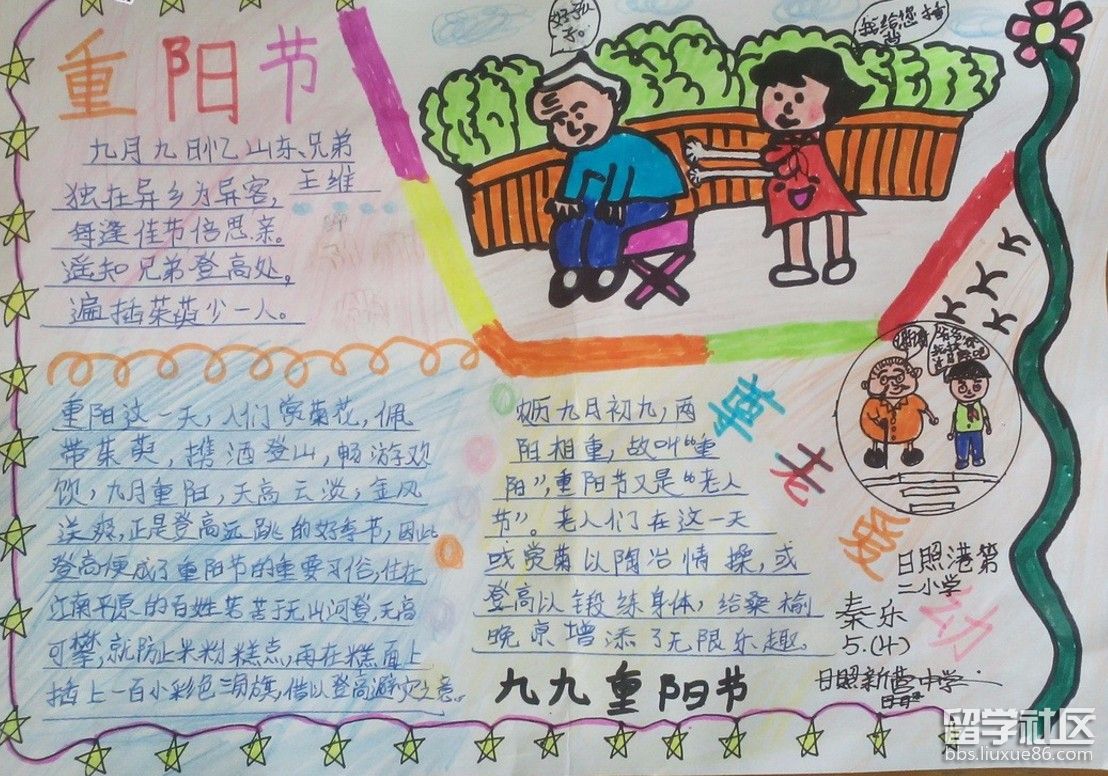 重阳节
九月九日忆山东兄弟
王维
独在异乡为异客，
每逢佳节倍思亲。
遥知兄弟登高处，
遍插茱萸少一人。
好孙
我给您捶
重阳这一天，人们赏菊花，佩
带茱萸，携酒登山，畅游欢
饮，九月重阳，天高云淡，金风
送爽，正是登高远跳的好季节，因此
登高便成了重阳节的重要习俗，住在
江南平原的百姓苦苦于无山河登，无高
可攀，就防止米粉糕点，再在糕面上
插上一百小彩色三角旗，借以登高避灾之意。
九月初九，两
阳相重，故叫“重
阳”，重阳节又是“老人
节”。老人们在这一天
或赏菊以陶冶情操，或
登高以锻练身体，给桑榆
晚京增添了无限乐趣。
九九重阳节
尊老爱幼
日照港第
二小学
秦乐
5.(4)
日照新营中学
留学社区
bbs.liuxue86.com